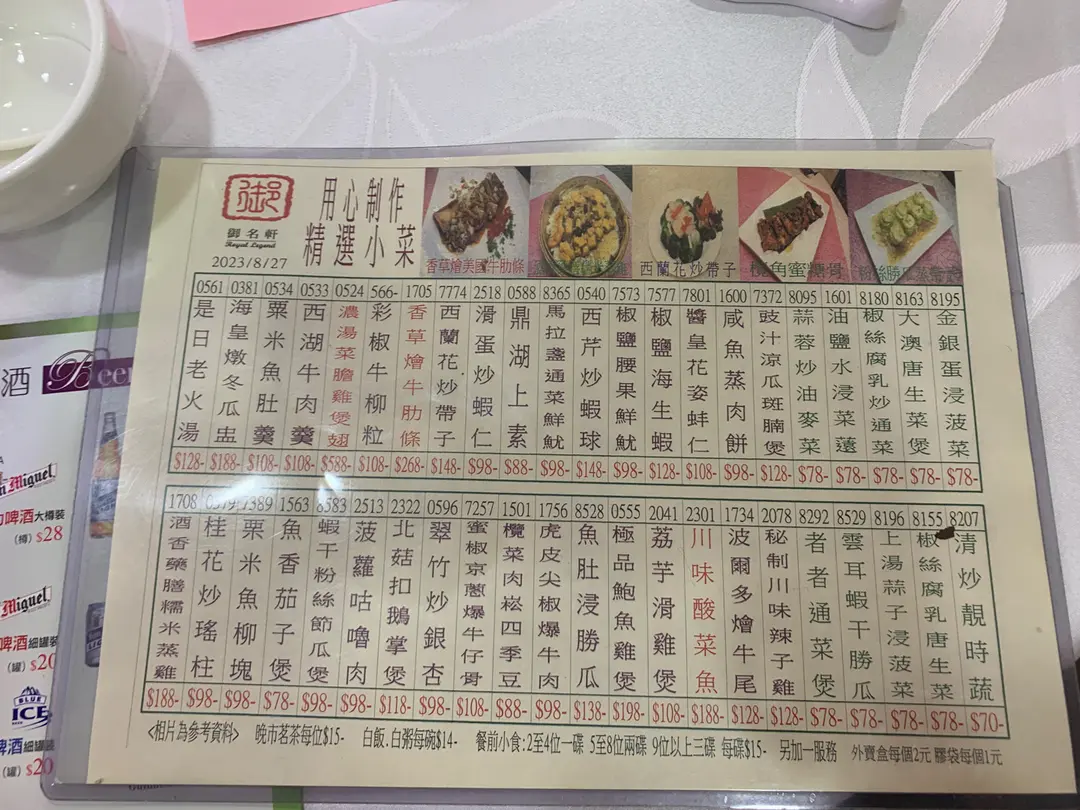 御名軒
Royal Legend
2023/8/27
用心制作
精選小菜
香草燴美國牛肋條
西蘭花炒帶子
0561 是日老火湯 $128-
0381 海皇燉冬瓜盅 $188-
0534 粟米魚肚羹 $108-
0533 西湖牛肉羹 $108-
0524 濃湯菜膽雞煲翅 $588-
566- 彩椒牛柳粒 $108-
1705 香草燴牛肋條 $268-
7774 西蘭花炒帶子 $148-
2518 滑蛋炒蝦仁 $98-
0588 鼎湖上素 $88-
8365 馬拉盞通菜鮮魷 $98-
0540 西芹炒蝦球 $148-
7573 椒鹽腰果鮮魷 $98-
7577 椒鹽海生蝦 $128-
7801 醬皇花姿蚌仁 $108-
1600 咸魚蒸肉餅 $98-
7372 豉汁涼瓜斑腩煲 $128-
8095 蒜蓉炒油麥菜 $78-
1601 油鹽水浸菜薳 $78-
8180 椒絲腐乳炒通菜 $78-
8163 大澳唐生菜煲 $78-
8195 金銀蛋浸菠菜 $78-
1708 酒香藥膳糯米蒸雞 $188-
桂花炒瑤柱 $98-
7389 粟米魚柳塊 $98-
1563 魚香茄子煲 $78-
8583 蝦干粉絲節瓜煲 $98-
2513 菠蘿咕嚕肉 $98-
2322 北菇扣鵝掌煲 $118-
0596 翠竹炒銀杏 $98-
7257 蜜椒京蔥爆牛仔骨 $108-
1501 欖菜肉崧四季豆 $88-
1756 虎皮尖椒爆牛肉 $98-
8528 魚肚浸勝瓜 $138-
0555 極品鮑魚雞煲 $198-
2041 荔芋滑雞煲 $108-
2301 川味酸菜魚 $188-
1734 波爾多燴牛尾 $128-
2078 秘制川味辣子雞 $128-
8292 者者通菜煲 $78-
8529 雲耳蝦干勝瓜 $78-
8196 上湯蒜子浸菠菜 $78-
8155 椒絲腐乳唐生菜 $78-
8207 清炒靚時蔬 $70-
<相片為參考資料> 晚市茗茶每位$15- 白飯.白粥每碗$14- 餐前小食:2至4位一碟 5至8位兩碟 9位以上三碟 每碟$15- 另加一服務 外賣盒每個2元 膠袋每個1元
酒
Beer
Miguel
啤酒大樽裝
(樽) $28
Miguel
啤酒細罐裝
(罐) $20
BLUE
ICE
啤酒細罐裝
(罐) $20